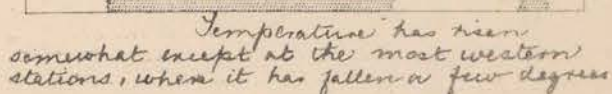 Temperature has risen
somewhat except at the most western
stations, where it has fallen a few degrees